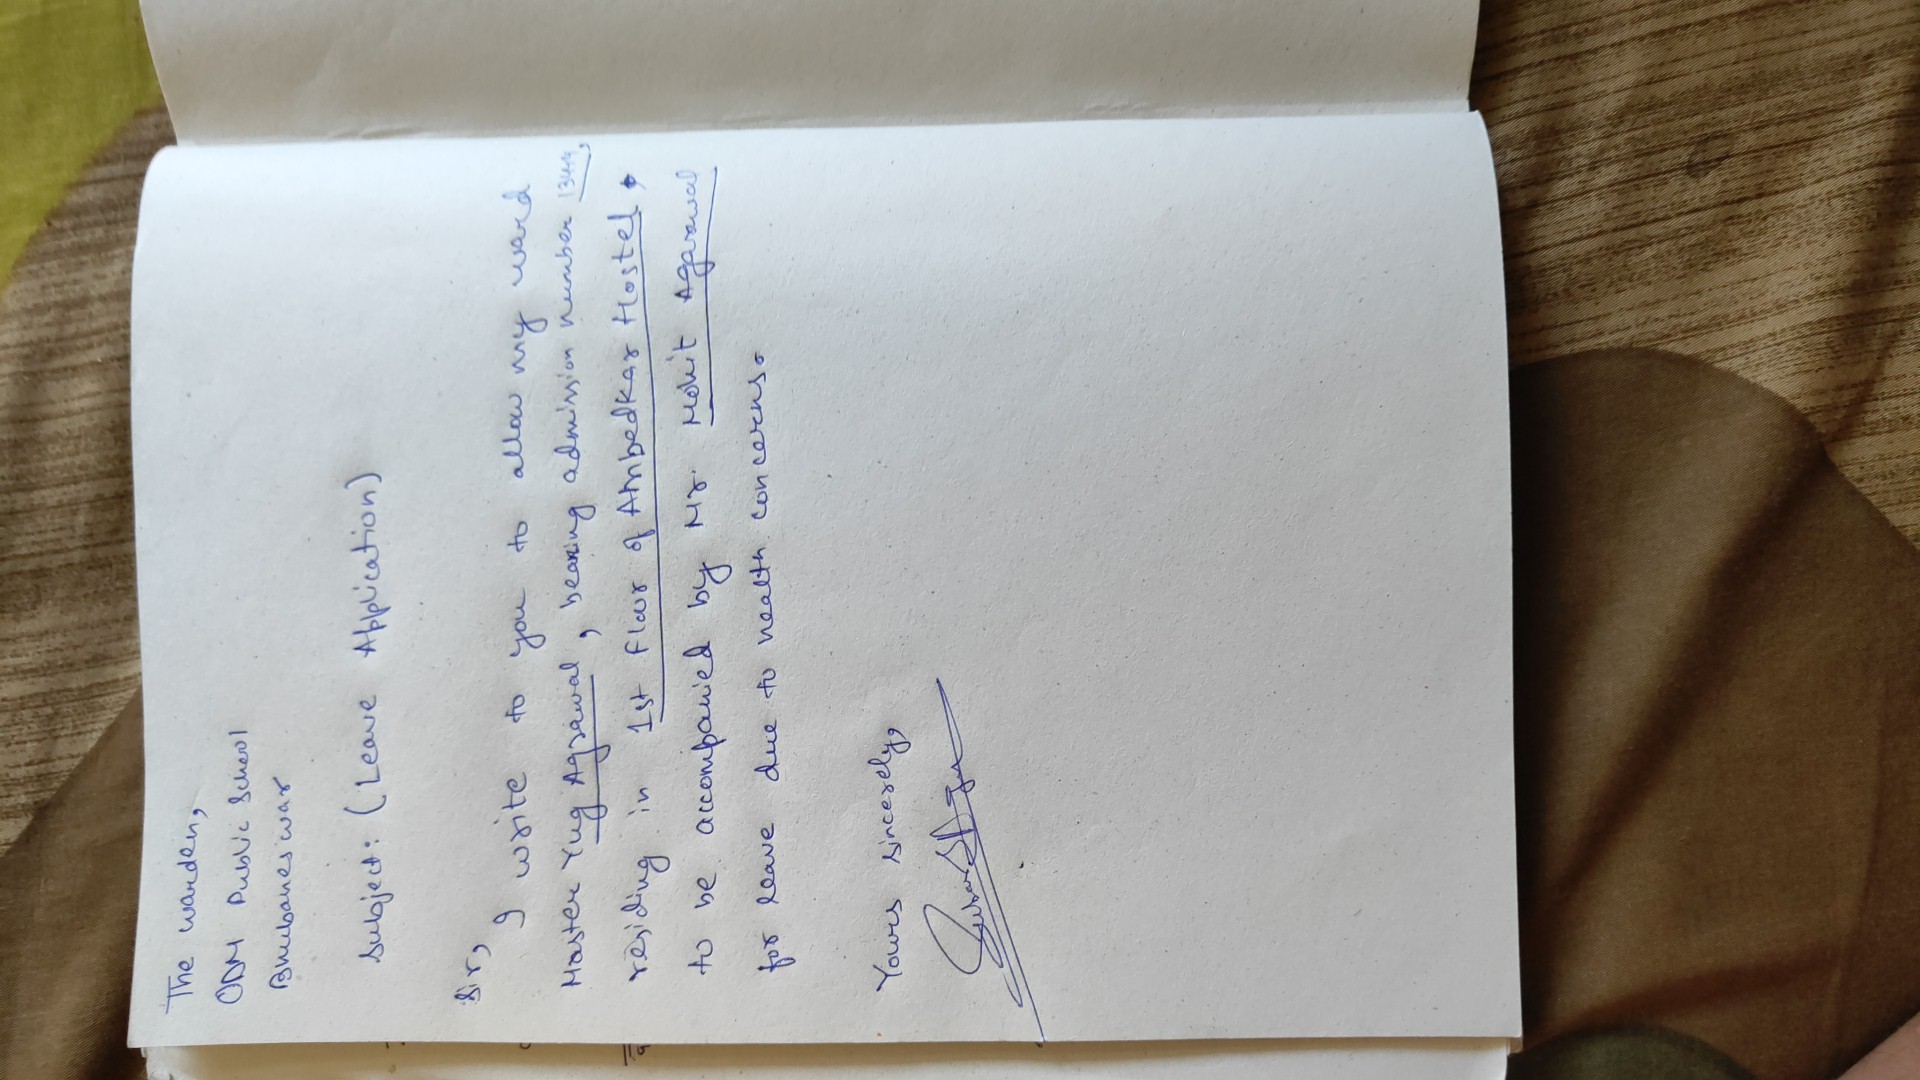 The Warden,
ODM Public School
Bhubaneswar
Subject: (Leave Application)
Sir,
I write to you to allow my ward
Master Yug Agrawal, bearing admission number
residing in 1st Floor of Ambedkar Hostel,
to be accompanied by Mr. Mohit Agarwal
for leave due to health concerns.
Yours sincerely,